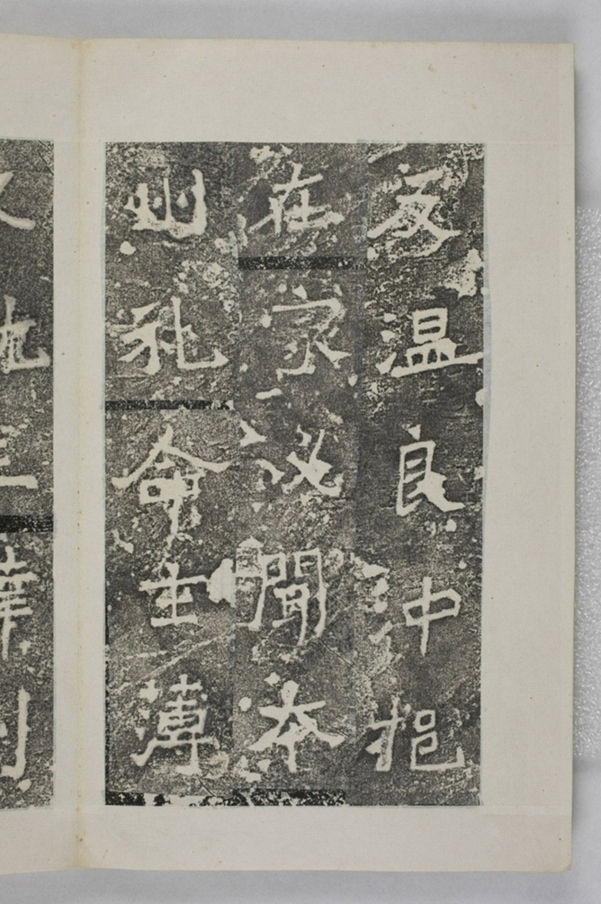 友温良沖挹
在家必聞本
州礼命主薄